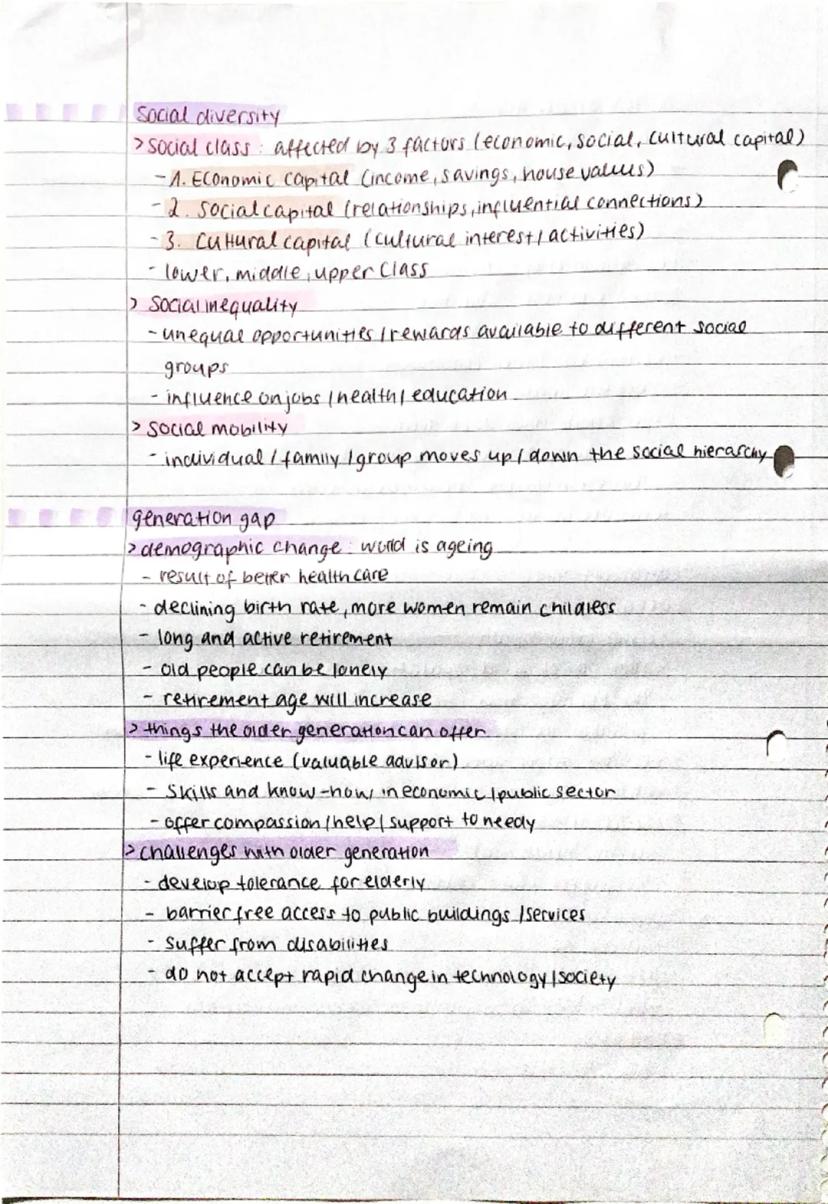 Social diversity
> Social class: affected by 3 factors (economic, social, cultural capital)
- 1. Economic capital (income, savings, house values)
- 2. Social capital (relationships, influential connections)
- 3. Cultural capital (cultural interest / activities)
- lower, middle, upper class
> Social inequality
- unequal opportunities / rewards available to different social
groups
- influence on jobs / health / education
> Social mobility
- individual / family / group moves up / down the social hierarchy
generation gap
> demographic change: world is ageing
- result of better health care
- declining birth rate, more women remain childless
- long and active retirement
- old people can be lonely
- retirement age will increase
> things the older generation can offer
- life experience (valuable advisor)
- skills and know-how in economic / public sector
- offer compassion / help / support to needy
> challenges with older generation
- develop tolerance for elderly
- barrier free access to public buildings / services
- suffer from disabilities
- do not accept rapid change in technology / society